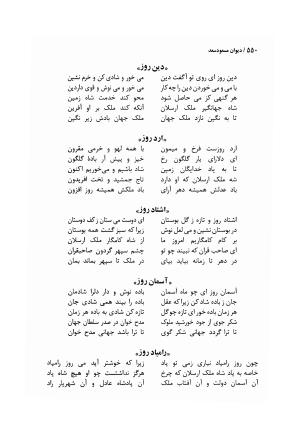 ۵۵۰ / دیوان مسعودسعد
*دین روز*
دین روز ای روی تو آگفت دین می خور و شادی کن و خرم نشین
با می و می خوردن دین را چه کار می خور و می نوش و قوی داردین
هر گنهی کز می حاصل شود محو کند خدمت شاه زمین
شاه جهانگیر ملک ارسلان آنکه کند ملک بر او آفرین
تا به نگین نازد ملک جهان ملک جهان بادش زیر نگین
*ارد روز*
ارد روزست فرخ و میمون با همه لهو و خرمی مقرون
ای دلارای یار گلگون رخ خیز و پیش آر بادهٔ گلگون
تا به یاد خدایگان زمین شاد باشیم و می‌خوریم اکنون
شه ملک ارسلان که او دارد تاج جمشید و تخت افریدون
باد عدلش همیشه دهر آرای باد ملکش همیشه روز افزون
*اشتاد روز*
اشتاد روز و تازه ز گل بوستان ای دوست می ستان ز کف دوستان
در بوستان نشین و می لعل نوش زیرا که سبز گشت همه بوستان
بر کام کامگاریم امروز ما از شاه کامگار ملک ارسلان
ای صاحب قران که نبیند چو تو چشم سپهر گردون صاحبقران
در دهر تا زمانه بیاید بپای در ملک تا سپهر بماند بمان
*آسمان روز*
آسمان روز ای چو ماه آسمان باده نوش و دار دلرا شادمان
جان ز باده شاد کن زیرا که عقل باده را بیند همی شادی جان
هر زمان باده خور ای تازه چو گل تازه کن شادی به باده هر زمان
شکر جوی از جود خورشید ملوک مدح خوان در صدر سلطان جهان
تا ترا گردد جهانی شکر جوی تا ترا باشد جهانی مدح خوان
*رامیاد روز*
چون روز رامیاد نیاری زمی تو یاد زیرا که خوشتر آید می روز رامیاد
خاصه به یاد شاه ملک ارسلان که چرخ هرگز نداشتست چو او هیچ شاه یاد
آن آسمان دولت و آن آفتاب ملک آن پادشاه عادل و آن شهریار راد